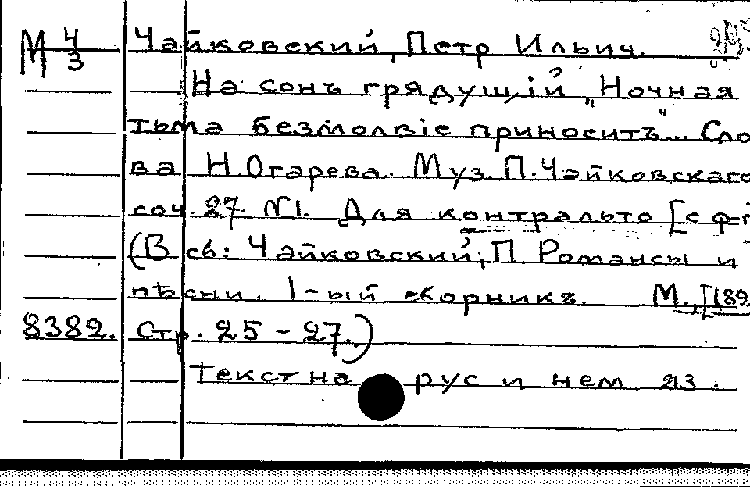 М 4/3 Чайковский, Петр Ильич.
На сонъ грядущій „Ночная
тьма безмолвіе приноситъ"... Сло
ва Н. Огарева. Муз. П. Чайковскаго
соч. 27. №1. Для контральто [с ф-п
(В сб: Чайковский, П. Романсы и
пѣсни. 1-ый сборникъ. М., [189
8382. Стр. 25-27.)
Текст на рус и нем яз.